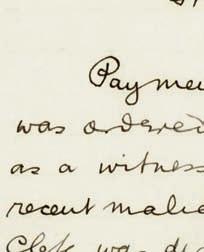 Payme
was ordered
as a witness
recent malic
Clerk was di